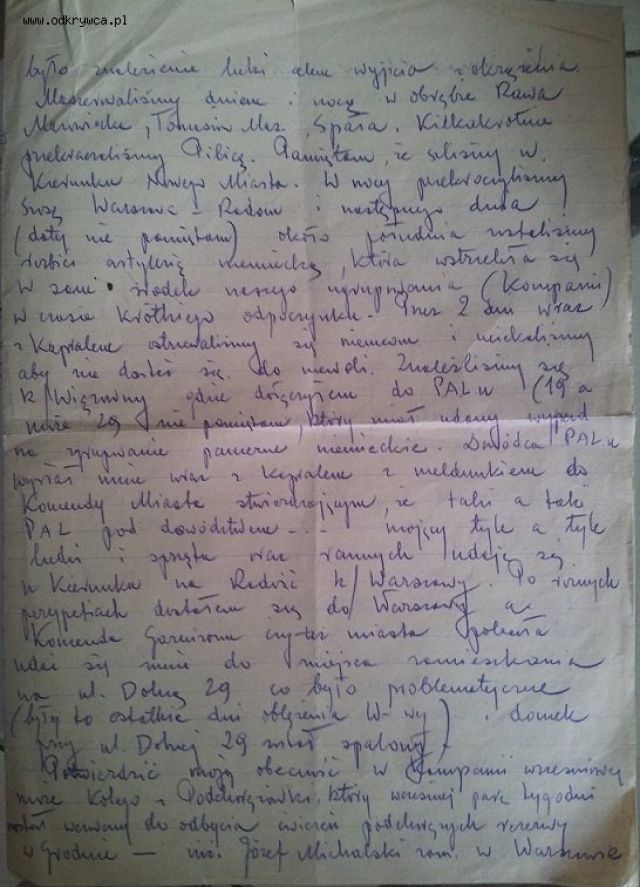 www.odkrywca.pl
było znalezienie luki celem wyjścia z okrążenia.
Maszerowaliśmy dniem i nocą w obrębie Rawa
Mazowiecka, Tomaszów Maz., Spała. Kilkakrotnie
przekraczaliśmy Pilicę. Pamiętam, że szliśmy w
kierunku Nowego Miasta. W nocy przekroczyliśmy
szosę Warszawa – Radom i następnego dnia
(daty nie pamiętam) około południa zostaliśmy
rozbici artylerią niemiecką, która wstrzelała się
w sam środek naszego ugrupowania (Kompanii)
w czasie krótkiego odpoczynku. Przez 2 dni wraz
z Kapralem ostrzeliwaliśmy się niemcom i uciekaliśmy
aby nie dostać się do niewoli. Znaleźliśmy się
k/Wiązowny gdzie dołączyłem do PAL-u (19 a
może 29 nie pamiętam, który miał udany wypad
na zgrupowanie pancerne niemieckie. Dowódca PAL-u
wysłał mnie wraz z Kapralem z meldunkiem do
Komendy Miasta stwierdzającym, że taki a taki
PAL pod dowództwem --- mający tyle a tyle
ludzi i sprzętu oraz rannych udaje się
w kierunku na Radość k/Warszawy. Po różnych
perypetiach dostałem się do Warszawy a
Komenda Garnizonu czy też miasta poleciła
udać się mnie do miejsca zamieszkania
na ul. Dolną 29 co było problematyczne
(były to ostatnie dni oblężenia W-wy), domek
przy ul. Dolnej 29 został spalony.
Potwierdzić moją obecność w Kampanii wrześniowej
może Kolega z Podchorążówki, który wcześniej parę tygodni
został wezwany do odbycia ćwiczeń podchorążych rezerwy
w Grodnie — inż. Józef Michalski zam. w Warszawie